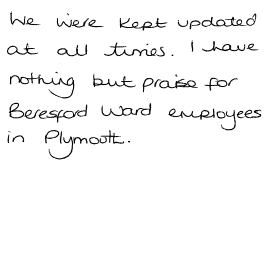 We were kept updated
at all times. I have
nothing but praise for
Beresford Ward employees
in Plymouth.